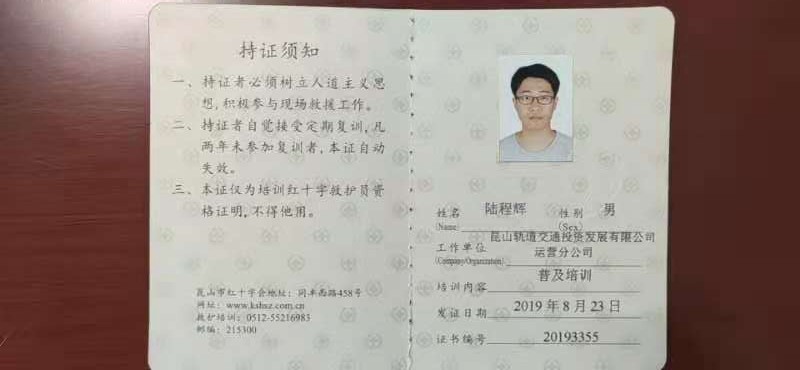 持证须知
一、持证者必须树立人道主义思
想,积极参与现场救援工作。
二、持证者自觉接受定期复训,凡
两年未参加复训者,本证自动
失效。
三、本证仅为培训红十字救护员资
格证明,不得他用。
昆山市红十字会地址：同丰西路458号
网址：www.kshsz.com.cn
救护培训：0512-55216983
邮编：215300
姓名 陆程辉 性别 男
(Name) (Sex)
昆山轨道交通投资发展有限公司
工作单位 运营分公司
(Company/Organization)
培训内容 普及培训
发证日期 2019 年 8 月 23 日
证书编号 20193355